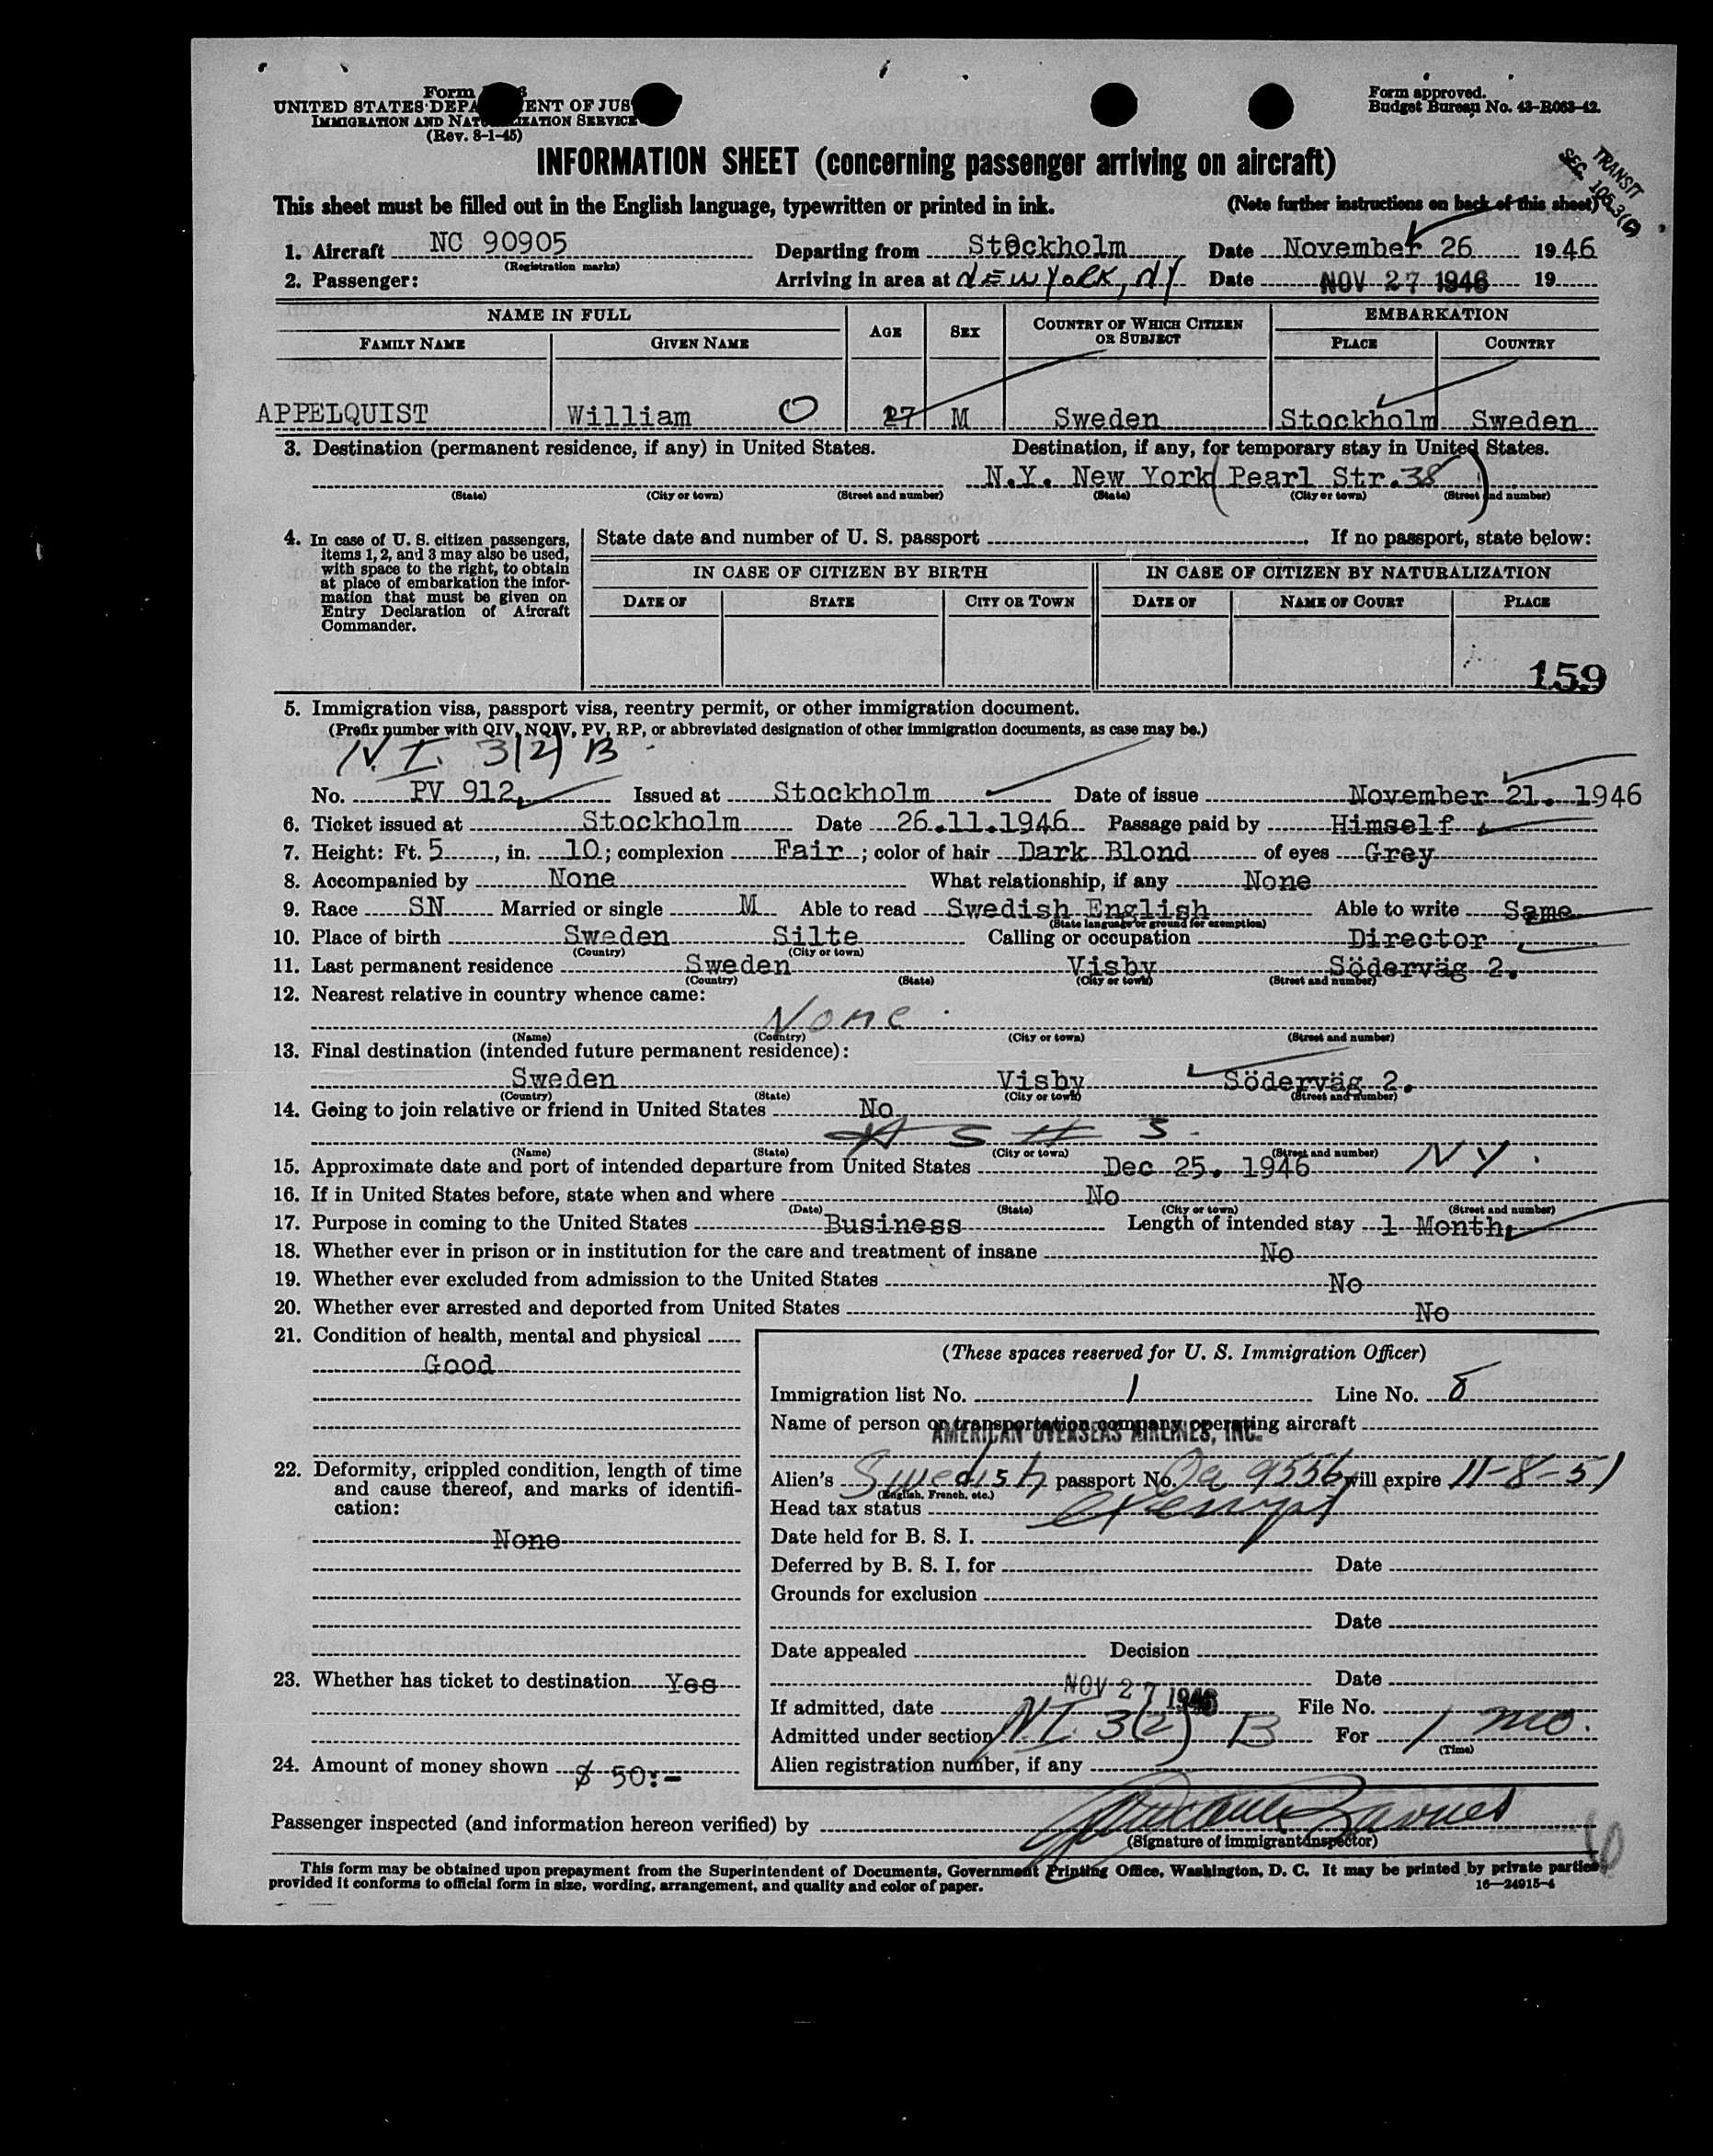 Form
UNITED STATES DEPA ENT OF JUS
IMMIGRATION AND NAT IZATION SERVICE
(Rev. 8-1-45)
Form approved.
Budget Bureau No. 43-R063-42.
INFORMATION SHEET (concerning passenger arriving on aircraft)
TRANSIT
SEC. 105.3(
This sheet must be filled out in the English language, typewritten or printed in ink. (Note further instructions on back of this sheet)
1. Aircraft NC 90905 Departing from Stockholm Date November 26 1946
(Registration marks)
2. Passenger: Arriving in area at NEW YORK, NY Date NOV 27 1946 19
NAME IN FULL AGE SEX COUNTRY OF WHICH CITIZEN OR SUBJECT EMBARKATION
FAMILY NAME GIVEN NAME PLACE COUNTRY
APPELQUIST William O 27 M Sweden Stockholm Sweden
3. Destination (permanent residence, if any) in United States. Destination, if any, for temporary stay in United States.
N.Y. New York (Pearl Str. 38)
(State) (City or town) (Street and number) (State) (City or town) (Street and number)
4. In case of U. S. citizen passengers, items 1, 2, and 3 may also be used, with space to the right, to obtain at place of embarkation the information that must be given on Entry Declaration of Aircraft Commander.
State date and number of U. S. passport . If no passport, state below:
IN CASE OF CITIZEN BY BIRTH IN CASE OF CITIZEN BY NATURALIZATION
DATE OF STATE CITY OR TOWN DATE OF NAME OF COURT PLACE
159
5. Immigration visa, passport visa, reentry permit, or other immigration document.
(Prefix number with QIV, NQIV, PV, RP, or abbreviated designation of other immigration documents, as case may be.)
N.I. 3(2) B
No. PV 912, Issued at Stockholm Date of issue November 21. 1946
6. Ticket issued at Stockholm Date 26.11.1946 Passage paid by Himself
7. Height: Ft. 5, in. 10; complexion Fair; color of hair Dark Blond of eyes Grey
8. Accompanied by None What relationship, if any None
9. Race SN Married or single M Able to read Swedish English Able to write Same
(State language or ground for exemption)
10. Place of birth Sweden Silte Calling or occupation Director
(Country) (City or town)
11. Last permanent residence Sweden Visby Söderväg 2.
(Country) (State) (City or town) (Street and number)
12. Nearest relative in country whence came:
None.
(Name) (Country) (City or town) (Street and number)
13. Final destination (intended future permanent residence):
Sweden Visby Söderväg 2.
(Country) (State) (City or town) (Street and number)
14. Going to join relative or friend in United States No
(Name) (State) (City or town) (Street and number)
15. Approximate date and port of intended departure from United States Dec 25. 1946 NY.
16. If in United States before, state when and where No
(Date) (State) (City or town) (Street and number)
17. Purpose in coming to the United States Business Length of intended stay 1 Month.
18. Whether ever in prison or in institution for the care and treatment of insane No
19. Whether ever excluded from admission to the United States No
20. Whether ever arrested and deported from United States No
21. Condition of health, mental and physical
Good
22. Deformity, crippled condition, length of time and cause thereof, and marks of identification:
None
23. Whether has ticket to destination Yes
24. Amount of money shown $ 50:-
(These spaces reserved for U. S. Immigration Officer)
Immigration list No. 1 Line No. 8
Name of person or transportation company operating aircraft
AMERICAN OVERSEAS AIRLINES, INC.
Alien's Swedish passport No. 9556 will expire 11-8-51
(English, French, etc.)
Head tax status exempt
Date held for B. S. I.
Deferred by B. S. I. for Date
Grounds for exclusion
Date
Date appealed Decision
Date
If admitted, date NOV 27 1946 File No.
Admitted under section NI 3(2) B For 1 mo.
(Time)
Alien registration number, if any
Passenger inspected (and information hereon verified) by
(Signature of immigrant inspector)
This form may be obtained upon prepayment from the Superintendent of Documents, Government Printing Office, Washington, D. C. It may be printed by private parties
provided it conforms to official form in size, wording, arrangement, and quality and color of paper. 16—24915-4